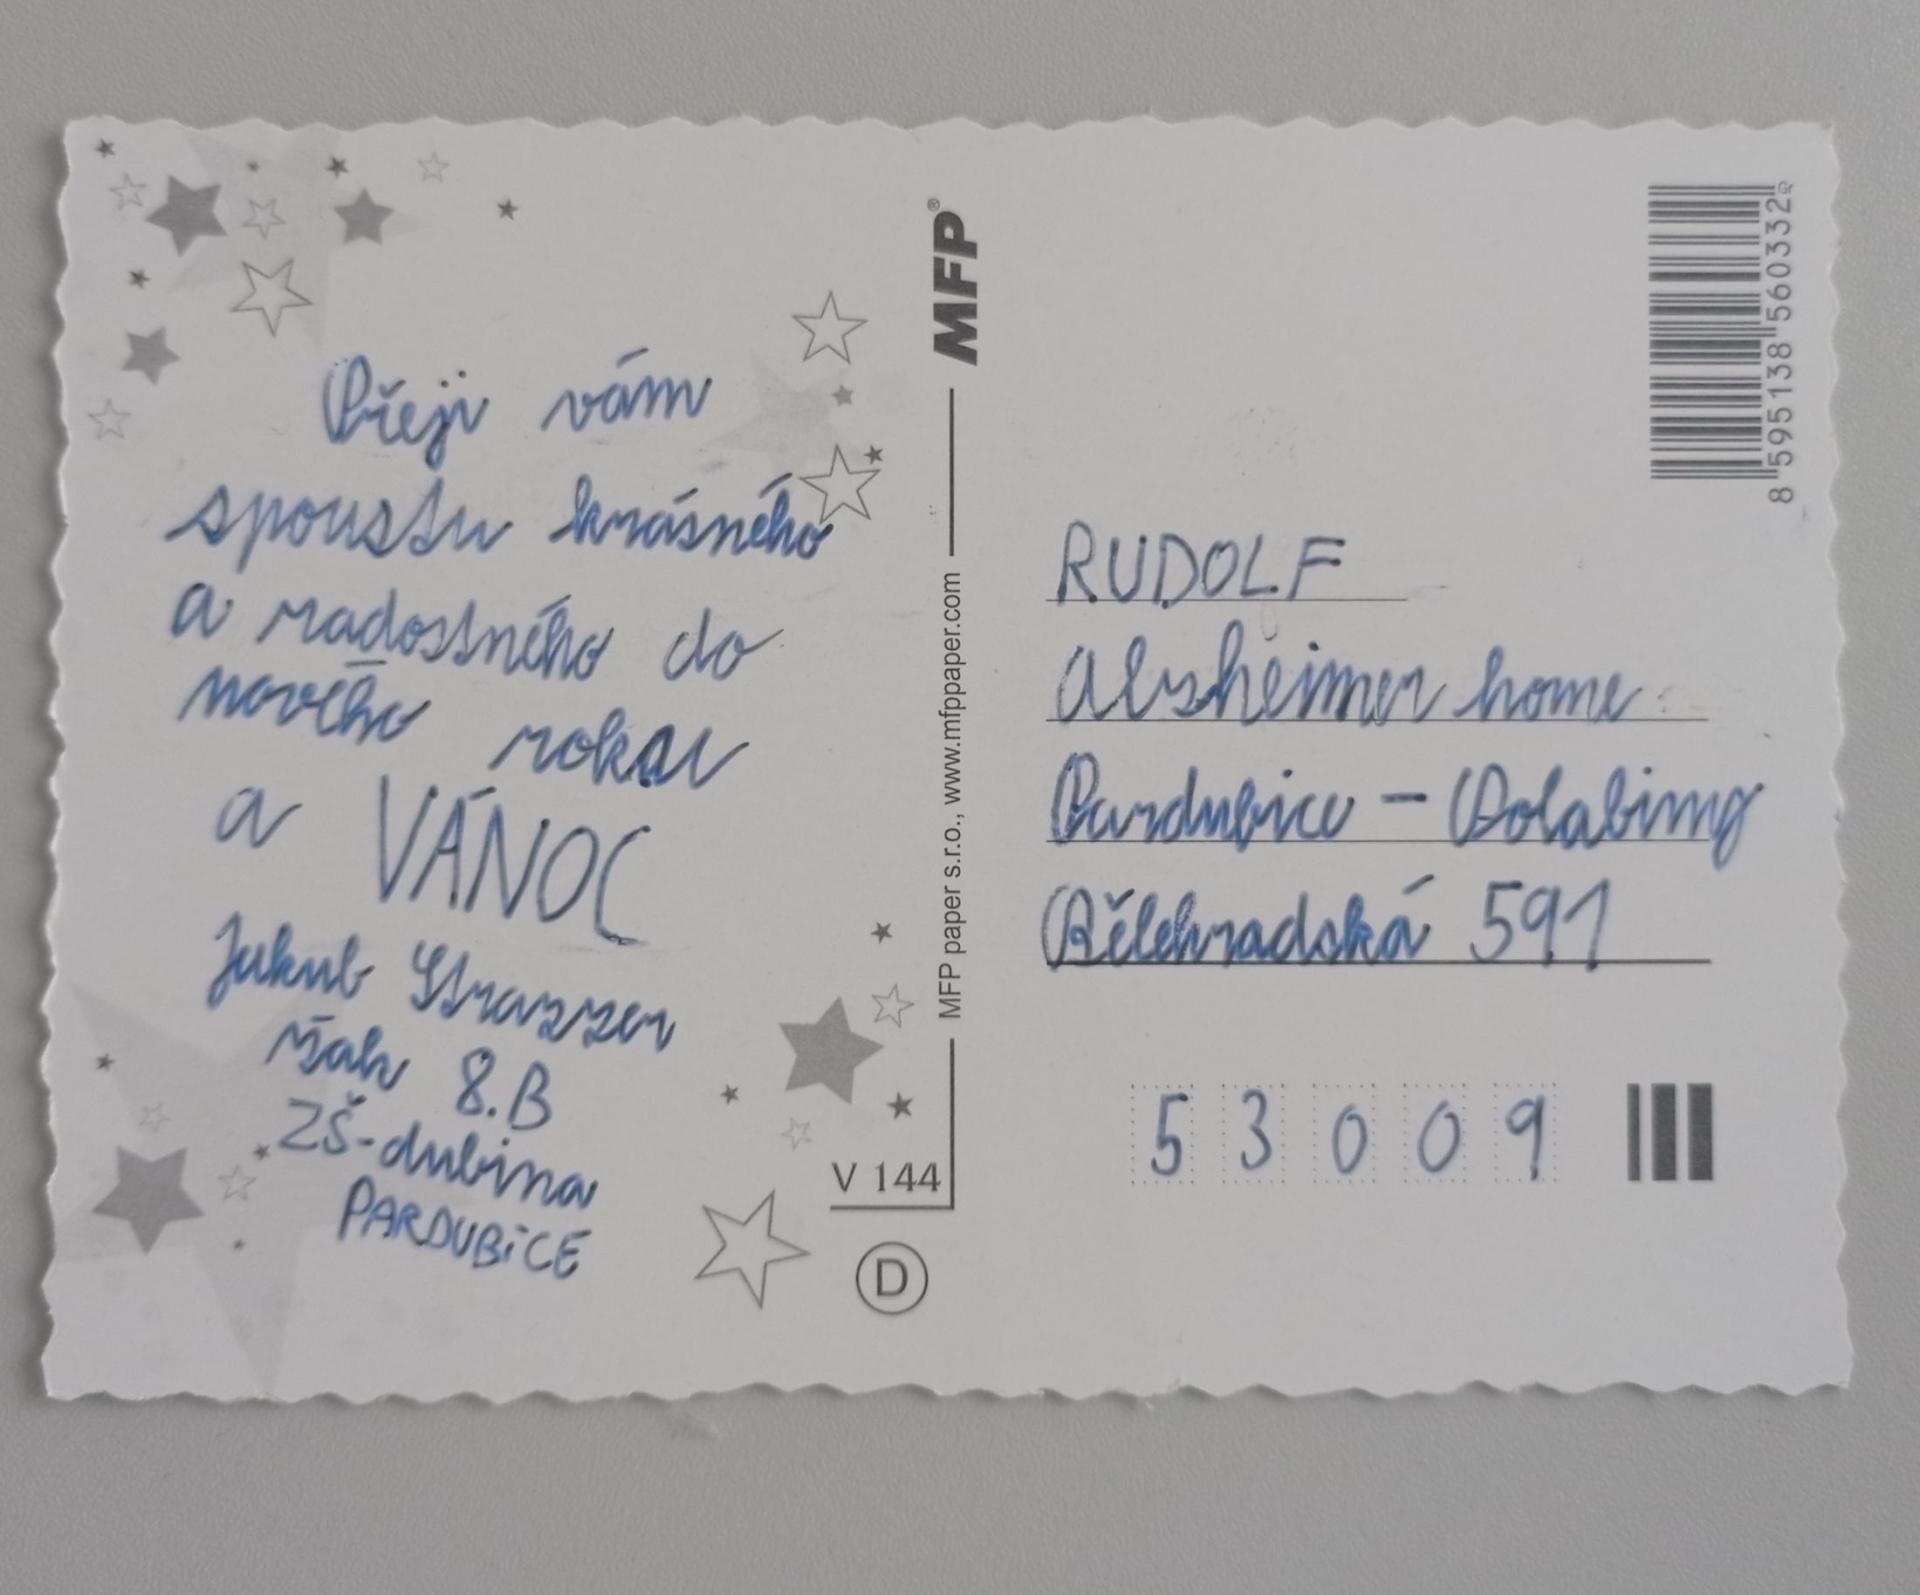 Přeji vám
spoustu krásného
a radostného do
nového roku
a VÁNOC
Jakub Strazzer
žák 8.B
ZŠ-dubina
PARDUBiCE
MFP®
MFP paper s.r.o., www.mfppaper.com
V 144
D
8 595138 560332
RUDOLF
Alzheimer home
Pardubice - Polabiny
Bělehradská 591
53009